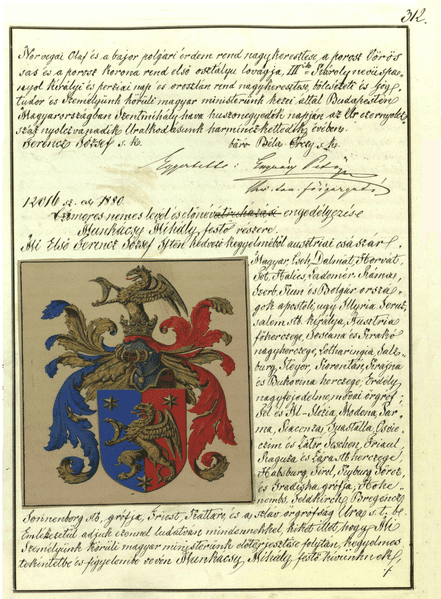 312.
Norvegai Olaf és a bajor polgári érdem rend nagykeresztese, a porosz Vörös
sas és a porosz korona rend első osztályu lovagja, III-ik Károly nevü spa-
nyol királyi és perzsai nap és oroszlán rend nagykeresztese, bölcsészeti és jog
tudor és Személyünk körüli magyar ministerünk kezei által Budapesten
Magyarországban Szentmihály hava huszonegyedik napján az Úr ezernyolcz
száz nyolczvanadik Uralkodásunk harminczkettedik évében.
Ferencz József s. k. báró Béla Orczy s. k.
Egyeztette:
12016 sz. 1880.
Czimeres nemes levél és előnév átruházás engedélyezése
Munkácsy Mihály festő részére.
Mi Első Ferencz József Isten kedvező kegyelméből ausztriai császár,
Magyar, Cseh, Dalmát, Horvát,
Tót, Halics, Ladomér, Ráma,
Szerb, Kun és Bolgár orszá-
gok apostoli, ugy Illyria, Jeruz-
salem stb. királya, Ausztria
főherczege, Toskána és Krakó
nagyherczege, Lotharingia, Salz-
burg, Steyer, Karantán, Krajna
és Bukovina herczege, Erdély
nagyfejedelme, morvai őrgróf,
Fel és Al-Slézia, Modena, Par-
ma, Piacenza, Guastalla, Osvie-
czim és Zator, Teschen, Friaul,
Raguza és Zára stb. herczege
Habsburg, Tirol, Kyburg, Görcz,
és Gradiska grófja, Hohe-
nembs, Feldkirch, Bregencz,
Sonnenberg stb. grófja, Triest, Kattaro, és a szláv őrgrófság Ura s. t. b.
Emlékezetül adjuk ezennel tudatván mindenekkel, kiket illet, hogy Mi
Személyünk körüli magyar ministerünk előterjesztése folytán, kegyelmes
tekintetbe és figyelembe vevén Munkácsy Mihály festő hivünknek,